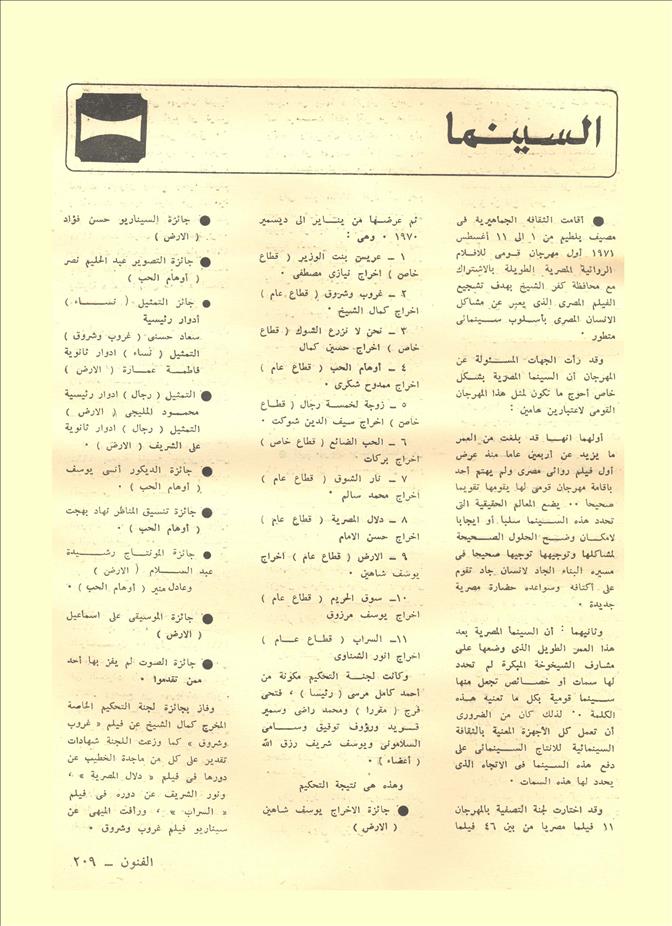 السينما
● أقامت الثقافه الجماهيرية فى
مصيف بلطيم من ١ الى ١١ أغسطس
١٩٧١ أول مهرجان قومى للافلام
الروائية المصرية الطويلة بالاشتراك
مع محافظة كفر الشيخ بهدف تشجيع
الفيلم المصرى الذى يعبر عن مشاكل
الانسان المصرى بأسلوب سينمائى
متطور ٠
وقد رأت الجهات المسئولة عن
المهرجان أن السينما المصرية بشكل
خاص أحوج ما تكون لمثل هذا المهرجان
القومى لاعتبارين هامين :
أولهما انهــا قد بلغت من العمر
ما يزيد عن أربعين عاما منذ عرض
أول فيلم روائى مصرى ولم يهتم أحد
باقامة مهرجان قومى لها يقومها تقويما
صحيحا ٠٠ يضع المعالم الحقيقية التى
تحدد هذه السينما سلبا أو ايجابا
لامكان وضع الحلول الصحيحة
لمشاكلها وتوجيهها توجيها صحيحا فى
مسيره البناء الجاد لانسان جاد تقوم
على أكتافه وسواعده حضارة مصرية
جديدة ٠
وثانيهما : أن السينما المصرية بعد
هذا العمر الطويل الذى وضعها على
مشارف الشيخوخة المبكرة لم تحدد
لها سمات أو خصائص تجعل منها
سينما قومية بكل ما تعنيه هذه
الكلمة ٠٠ لذلك كان من الضرورى
أن تعمل كل الأجهزة المعنية بالثقافة
السينمائية للانتاج السينمائى على
دفع هذه السينما فى الاتجاه الذى
يحدد لها هذه السمات ٠
وقد اختارت لجنة التصفية بالمهرجان
١١ فيلما مصريا من بين ٤٦ فيلما
تم عرضها من يناير الى ديسمبر
١٩٧٠ ٠ وهى :
١ ــ عريس بنت الوزير ( قطاع
خاص ) اخراج نيازى مصطفى ٠
٢ ــ غروب وشروق ( قطاع عام )
اخراج كمال الشيخ ٠
٣ ــ نحن لا نزرع الشوك ( قطاع
خاص ) اخراج حسين كمال
٤ ــ أوهام الحب ( قطاع عام )
اخراج ممدوح شكرى ٠
٥ ــ زوجة لخمسة رجال ( قطاع
خاص ) اخراج سيف الدين شوكت ٠
٦ ــ الحب الضائع ( قطاع خاص )
اخراج بركات ٠
٧ ــ نار الشوق ( قطاع عام )
اخراج محمد سالم ٠
٨ ــ دلال المصرية ( قطاع عام )
اخراج حسن الامام
٩ ــ الارض ( قطاع عام ) اخراج
يوسف شاهين ٠
١٠ــ سوق الحريم ( قطاع عام )
اخراج يوسف مرزوق
١١ــ السراب ( قطاع عــام )
اخراج انور الشناوى
وكانت لجنة التحكيم مكونة من
أحمد كامل مرسى ( رئيسا ) ، فتحى
فرج ( مقررا ) ومحمد راضى وسمير
فريد ورؤوف توفيق وسامى
السلامونى ويوسف شريف رزق الله
( أعضاء ) ٠
وهذه هى نتيجة التحكيم
● جائزة الاخراج يوسف شاهين
( الارض )
● جائزة السيناريو حسن فؤاد
( الارض )
● جائزة التصوير عبد الحليم نصر
( أوهام الحب )
● جائز التمثيل ( نساء )
أدوار رئيسية
سعاد حسنى ( غروب وشروق )
التمثيل ( نساء ) ادوار ثانوية
فاطمة عمارة ( الارض )
● التمثيل ( رجال ) ادوار رئيسية
محمود المليجى ( الارض )
التمثيل ( رجال ) ادوار ثانوية
على الشريف ( الارض ) ٠
● جائزة الديكور أنسى يوسف
( أوهام الحب ) ٠
● جائزة تنسيق المناظر نهاد بهجت
( أوهام الحب ) ٠
● جائزة المونتاج رشيدة
عبد السلام ( الارض )
وعادل منير ( أوهام الحب ) ٠
● جائزة الموسيقى على اسماعيل
( الارض )
● جائزة الصوت لم يفز بها أحد
ممن تقدموا ٠
وفاز بجائزة لجنة التحكيم الخاصة
المخرج كمال الشيخ عن فيلم « غروب
وشروق » كما وزعت اللجنة شهادات
تقدير على كل من ماجدة الخطيب عن
دورها فى فيلم « دلال المصرية » ،
ونور الشريف عن دوره فى فيلم
« السراب » ، ورأفت الميهى عن
سيناريو فيلم غروب وشروق ٠
الفنون ــ ٢٠٩